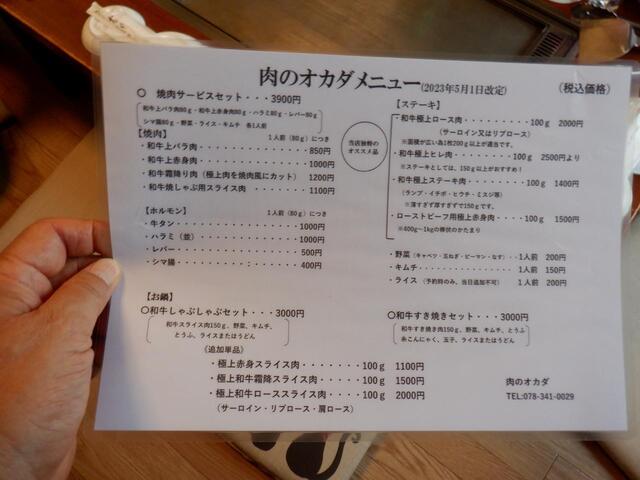 肉のオカダメニュー(2023年5月1日改定)
(税込価格)
〇 焼肉サービスセット・・・3900円
和牛上バラ肉80g・和牛上赤身肉80g・ハラミ80g・レバー80g
シマ腸80g・野菜・ライス・キムチ 各1人前
【焼肉】 1人前(80g)につき
・和牛上バラ肉・・・・・・・・・・850円
・和牛上赤身肉・・・・・・・・・・1000円
・和牛霜降り肉(極上肉を焼肉風にカット) 1200円
・和牛焼しゃぶ用スライス肉 ・・・・・1100円
【ホルモン】 1人前(80g)につき
・牛タン・・・・・・・・・・・・1000円
・ハラミ(並)・・・・・・・・・・1000円
・レバー・・・・・・・・・・・・500円
・シマ腸・・・・・・・・・・・・400円
当店独特の
オススメ品
【ステーキ】
・和牛極上ロース肉・・・・・・・・100g 2000円
(サーロイン又はリブロース)
※面積が広い為1枚200g以上が適当です。
・和牛極上ヒレ肉・・・・・・・・100g 2500円より
※ステーキとしては、150g以上がおすすめ!
・和牛極上ステーキ肉・・・・・・100g 1400円
(ランプ・イチボ・ヒウチ・ミスジ等)
※薄すぎず厚すぎずで150gです。
・ローストビーフ用極上赤身肉・・・・100g 1500円
※400g~1kgの棒状のかたまり
・野菜(キャベツ・玉ねぎ・ピーマン・なす)・・1人前 200円
・キムチ・・・・・・・・・・・・1人前 150円
・ライス(予約時のみ、当日追加不可) 1人前 200円
【お鍋】
〇和牛しゃぶしゃぶセット・・・3000円
和牛スライス肉150g、野菜、キムチ、
とうふ、ライスまたはうどん
〇和牛すき焼きセット・・・3000円
和牛すき焼き肉150g、野菜、キムチ、とうふ
糸こんにゃく、玉子、ライスまたはうどん
(追加単品)
・極上赤身スライス肉・・・・・・・100g 1100円
・極上和牛霜降スライス肉・・・・・100g 1500円
・極上和牛ローススライス肉・・・・100g 2000円
(サーロイン・リブロース・肩ロース)
肉のオカダ
TEL:078-341-0029